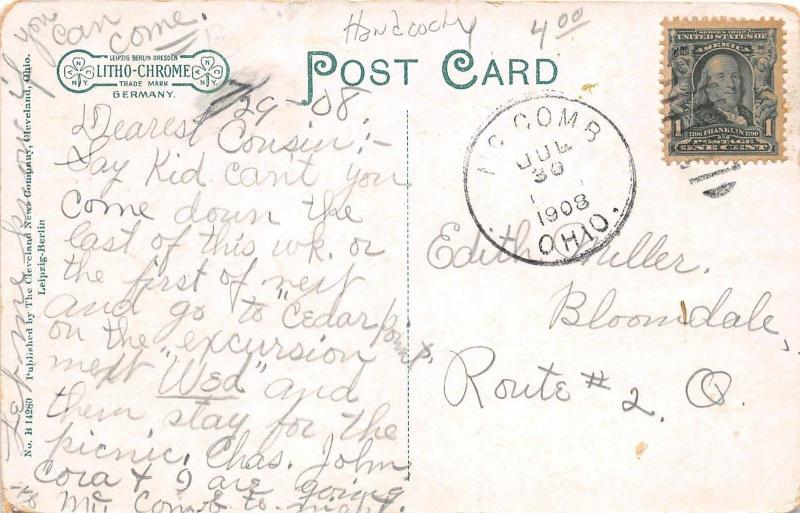 Hancock
4.00
LEIPZIG BERLIN DRESDEN
LITHO-CHROME
TRADE MARK
GERMANY.
N Y
N Y
POST CARD
7/29-08.
Dearest Cousin;-
Say Kid can't you
come down the
last of this wk. or
the first of next
and go to "Cedar Point"
on the "excursion
next "Wed" and
then stay for the
picnic. Chas. John,
Cora + I are going
to Mc. Comb to-night.
Let me know if you
can
come.
No. B 14280 Published by The Cleveland News Company, Cleveland, Ohio.
Leipzig-Berlin
MC COMB
JUL
30
1908
OHIO.
SERIES 1902
UNITED STATES OF
AMERICA
1706 FRANKLIN 1790
1 POSTAGE 1
ONE CENT
Edith Miller.
Bloomdale,
Route # 2. O.